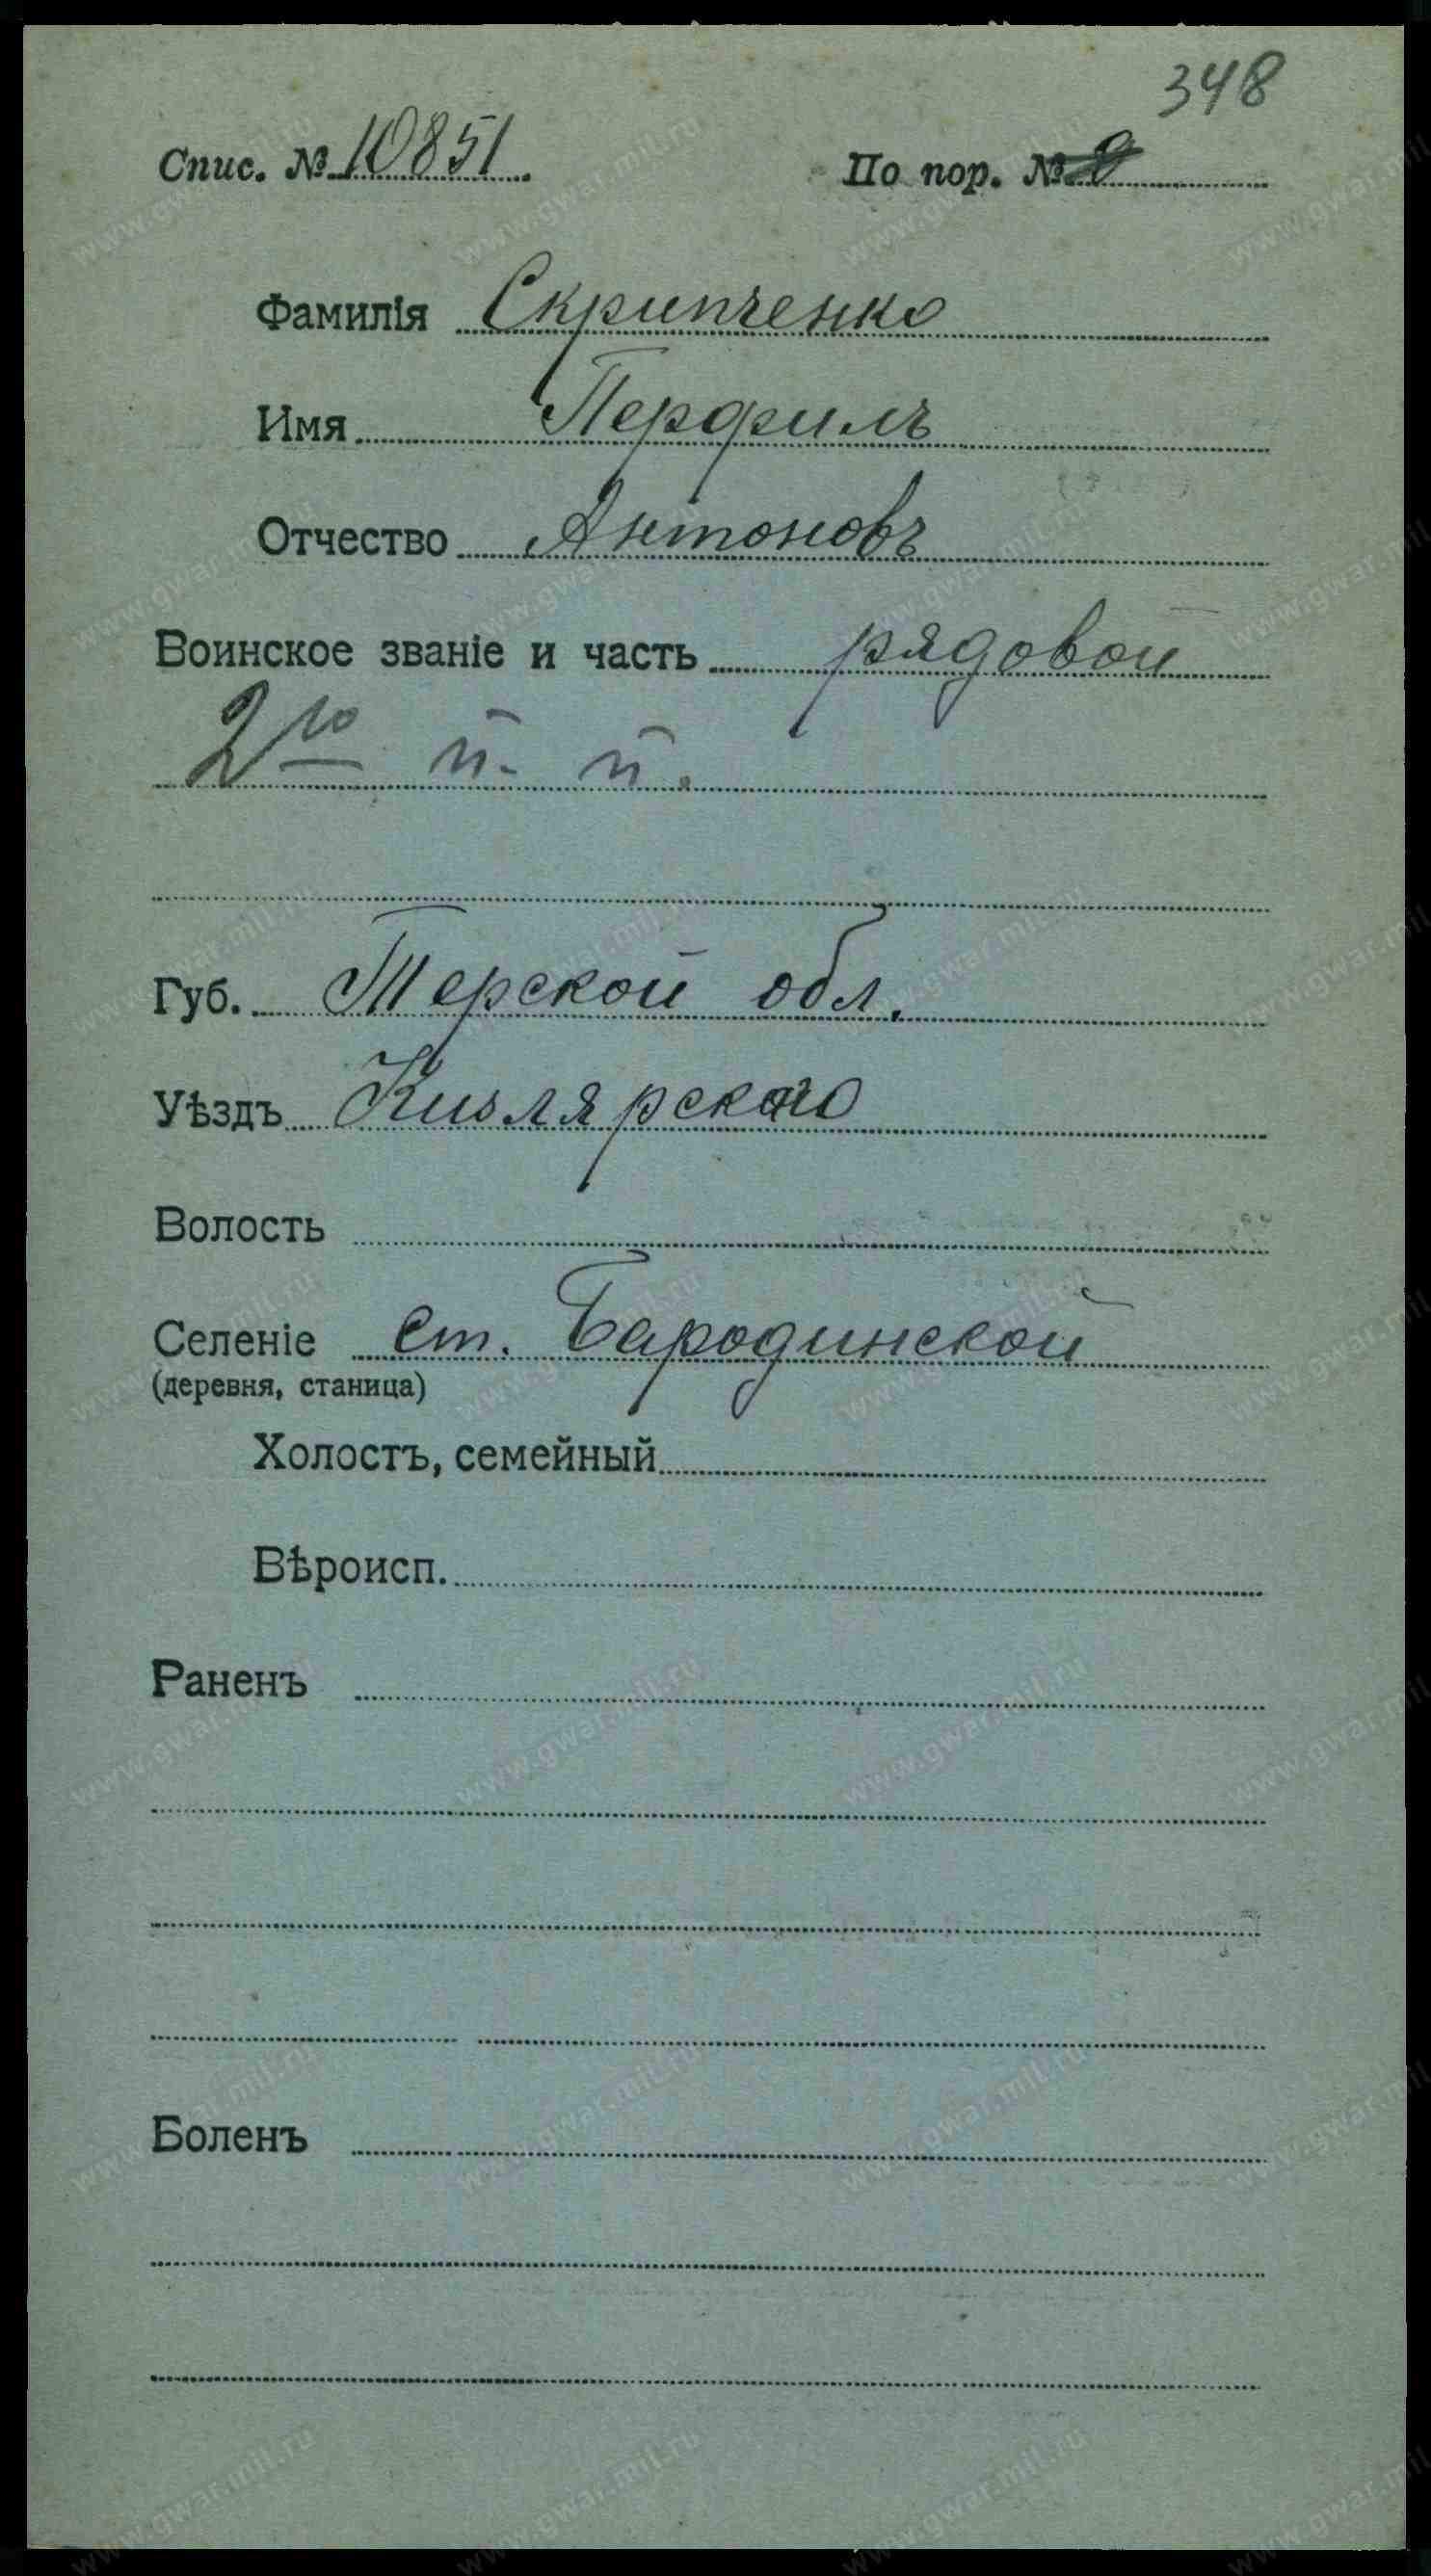 348
Спис. № 10851. По пор. №
Фамилія Скрипченко
Имя Перфилъ
Отчество Антоновъ
Воинское званіе и часть рядовой
2го п. п.
Губ. Терской обл.
Уѣздъ Кизлярского
Волость
Селеніе ст. Бародинской
(деревня, станица)
Холостъ, семейный
Вѣроисп.
Раненъ
Боленъ
www.gwar.mil.ru